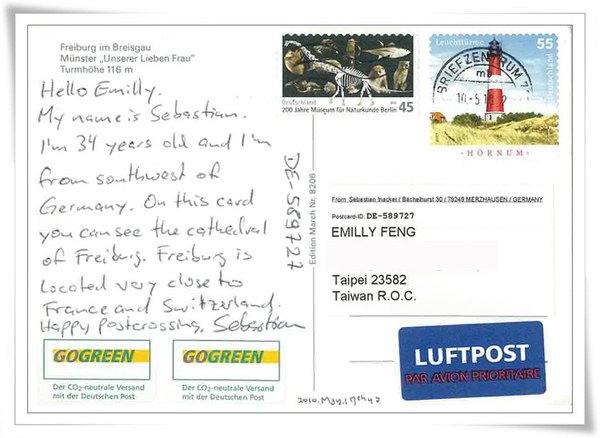 Freiburg im Breisgau
Münster „Unserer Lieben Frau“
Turmhöhe 116 m
Hello Emilly.
My name is Sebastian.
I'm 34 years old and I'm
from southwest of
Germany. On this card
you can see the cathedral
of Freiburg. Freiburg is
located very close to
France and Switzerland.
Happy postcrossing, Sebastian
GOGREEN
Der CO₂-neutrale Versand
mit der Deutschen Post
GOGREEN
Der CO₂-neutrale Versand
mit der Deutschen Post
DE-589727
Edition March Nr. 8206
Deutschland
200 Jahre Museum für Naturkunde Berlin
45
Leuchttürme
55
Deutschland
HÖRNUM
BRIEFZENTRUM
From: Sebastian Inacker / Bächelhurst 30 / 79249 MERZHAUSEN / GERMANY
Postcard-ID: DE-589727
EMILLY FENG
Taipei 23582
Taiwan R.O.C.
LUFTPOST
PAR AVION PRIORITAIRE
2010. May.